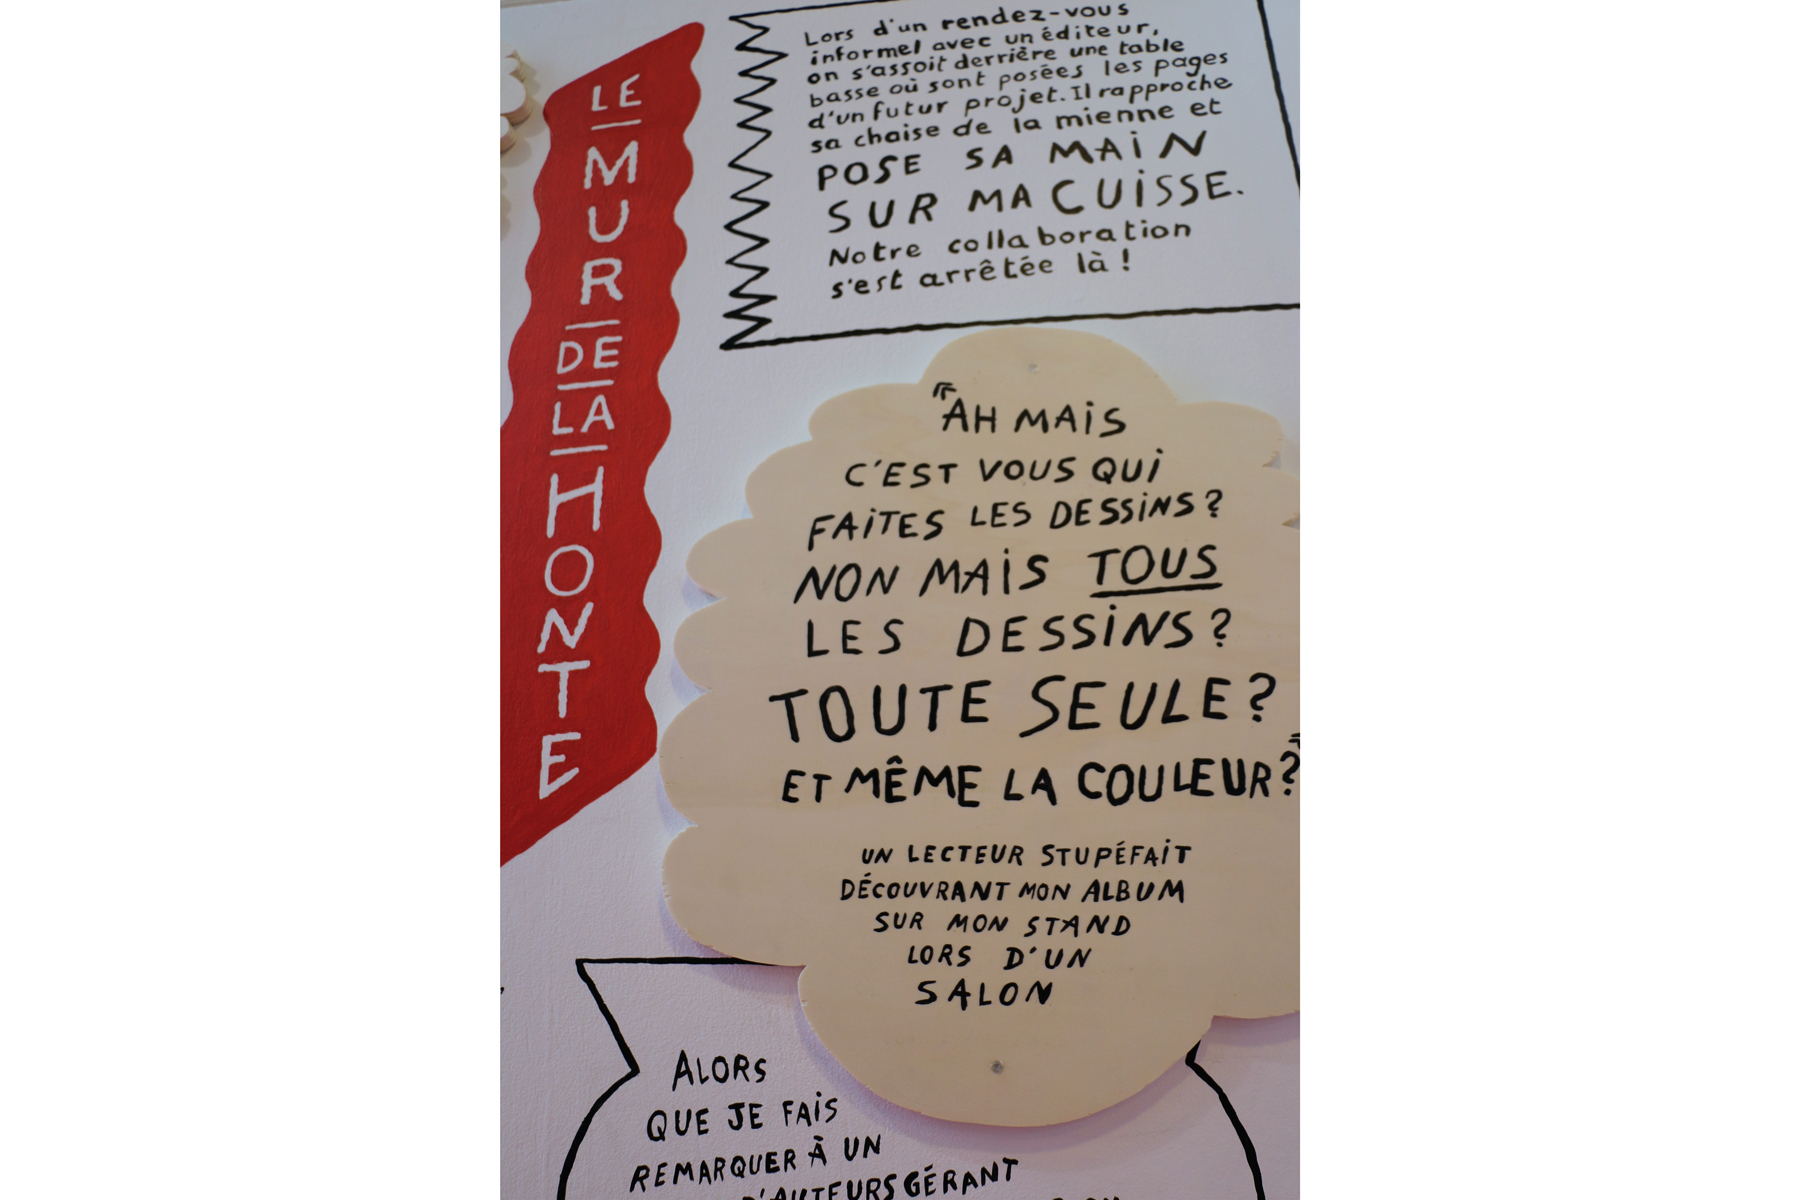 LE
MUR
DE
LA
HONTE
Lors d'un rendez-vous
informel avec un éditeur,
on s'assoit derrière une table
basse où sont posées les pages
d'un futur projet. Il rapproche
sa chaise de la mienne et
POSE SA MAIN
SUR MA CUISSE.
Notre collaboration
s'est arrêtée là !
"AH MAIS
C'EST VOUS QUI
FAITES LES DESSINS ?
NON MAIS TOUS
LES DESSINS ?
TOUTE SEULE ?
ET MÊME LA COULEUR ?"
UN LECTEUR STUPÉFAIT
DÉCOUVRANT MON ALBUM
SUR MON STAND
LORS D'UN
SALON
ALORS
QUE JE FAIS
REMARQUER À UN
D'AUTEURS GÉRANT